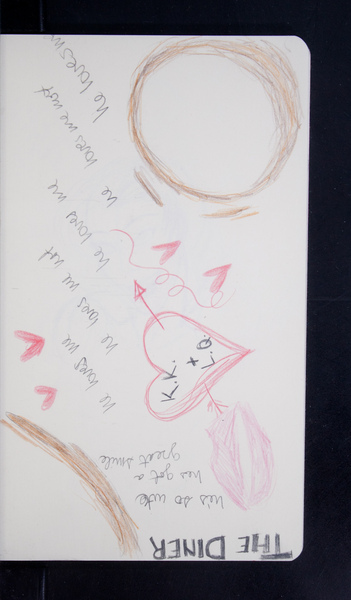 THE DINER
he's so cute
has got a
great smile
K.K.
+
L.Q.
he loves me
he loves me not
he loves me
he loves me not
he loves m